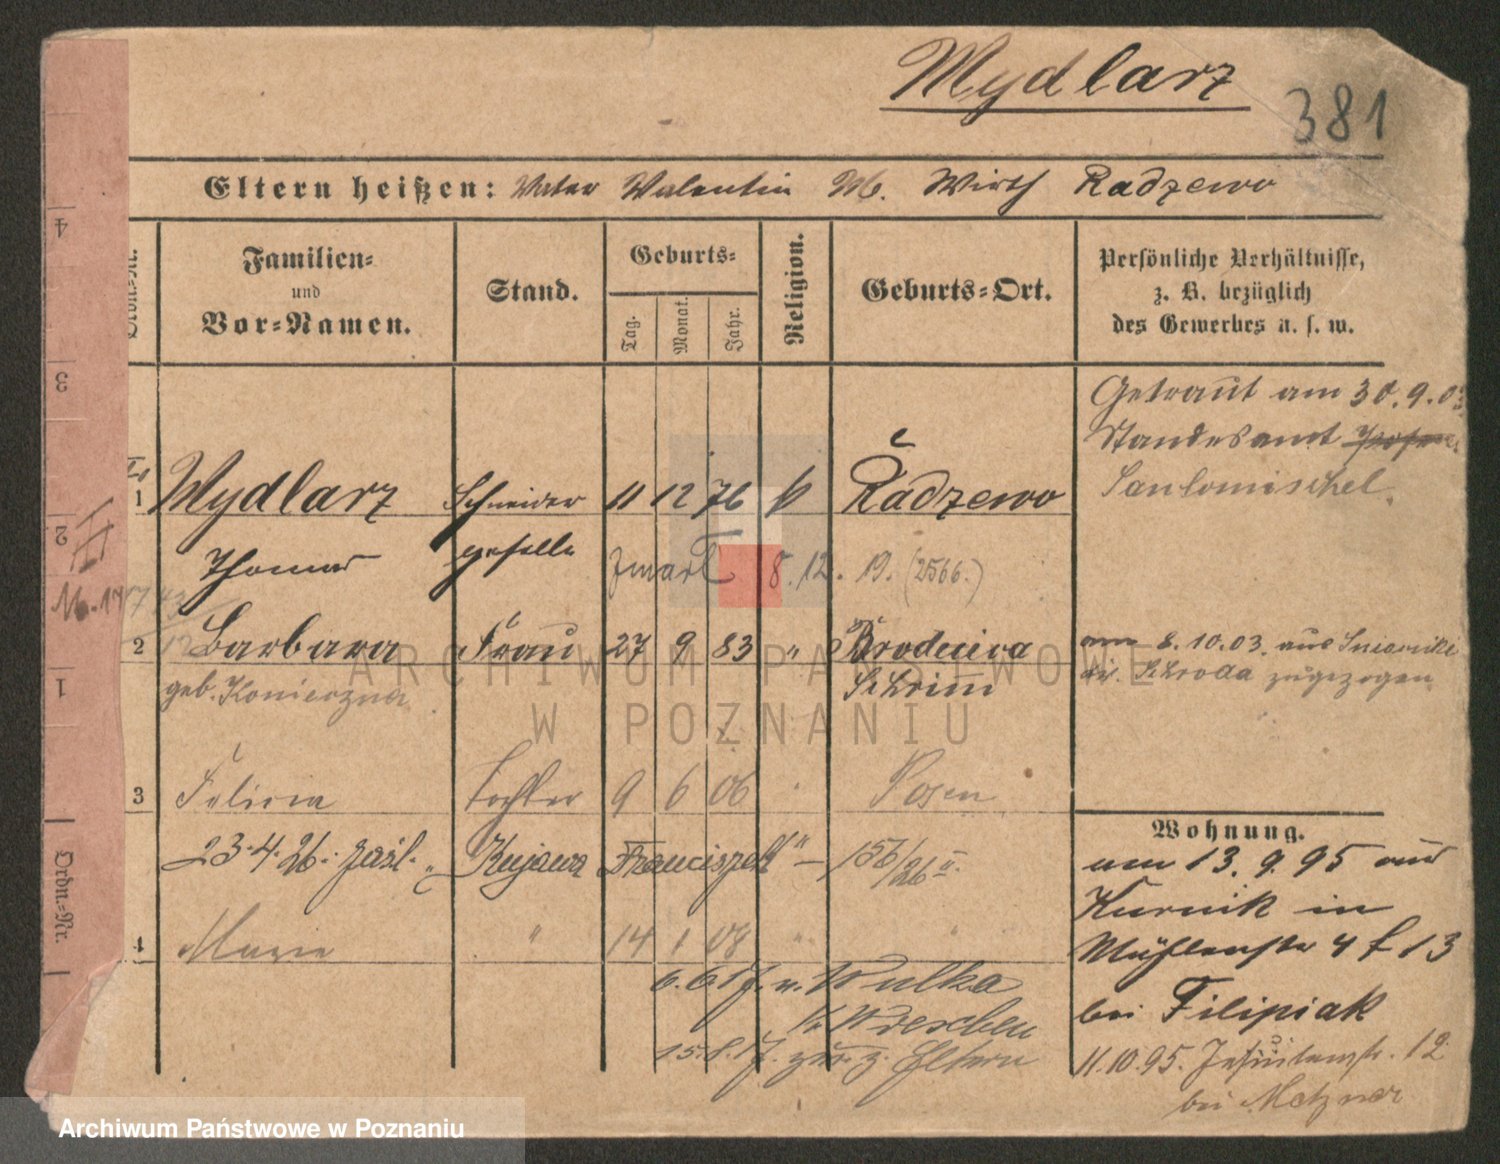 Mydlarz
381
Eltern heißen: Vater Valentin M. Wirth Radzewo
Ordn.-Nr.
Familien-
und
Vor-Namen.
Stand.
Geburts-
Tag.
Monat.
Jahr.
Religion.
Geburts-Ort.
Persönliche Verhältnisse,
z. B. bezüglich
des Gewerbes u. s. w.
Getraut am 30.9.03
Standesamt Posen
Santomischel.
1 Mydlarz Schneider 11 12 76 k Radzewo
Thomas geselle
zmarł 8.12.19. (2566.)
2 Barbara Frau 27 9 83 " Brodnica
geb. Konieczna Schrimm
am 8.10.03. aus Sniecniki
Kr. Schroda zugezogen
3 Felicia Tochter 9 6 06 " Posen
23.4.26. zaśl. Kujawa Franciszek " 156/26 II.
4 Marie " 14 1 08 " "
6.6.17. n. Wulka
Kr. Wreschen
15.8.17. zur. z. Eltern
Wohnung.
am 13.9.95 aus
Kurnik in
Mühlenstr 4 f 13
bei Filipiak
11.10.95. Jesuitenstr. 12
bei Metzner
4
3
2
1
Ordn.-Nr.
II
ARCHIWUM PAŃSTWOWE
W POZNANIU
Archiwum Państwowe w Poznaniu